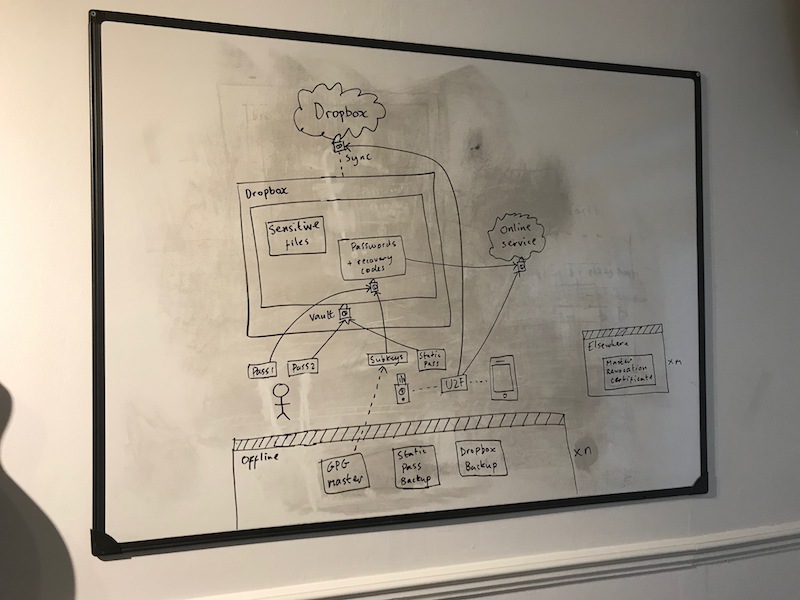 Dropbox
Sync
Dropbox
Sensitive
files
Passwords
+ recovery
codes
Vault
Online
service
Pass1
Pass2
Subkeys
Static
Pass
U2F
Elsewhere
Master
Revocation
certificate
x m
Offline
GPG
master
Static
Pass
Backup
Dropbox
Backup
x n